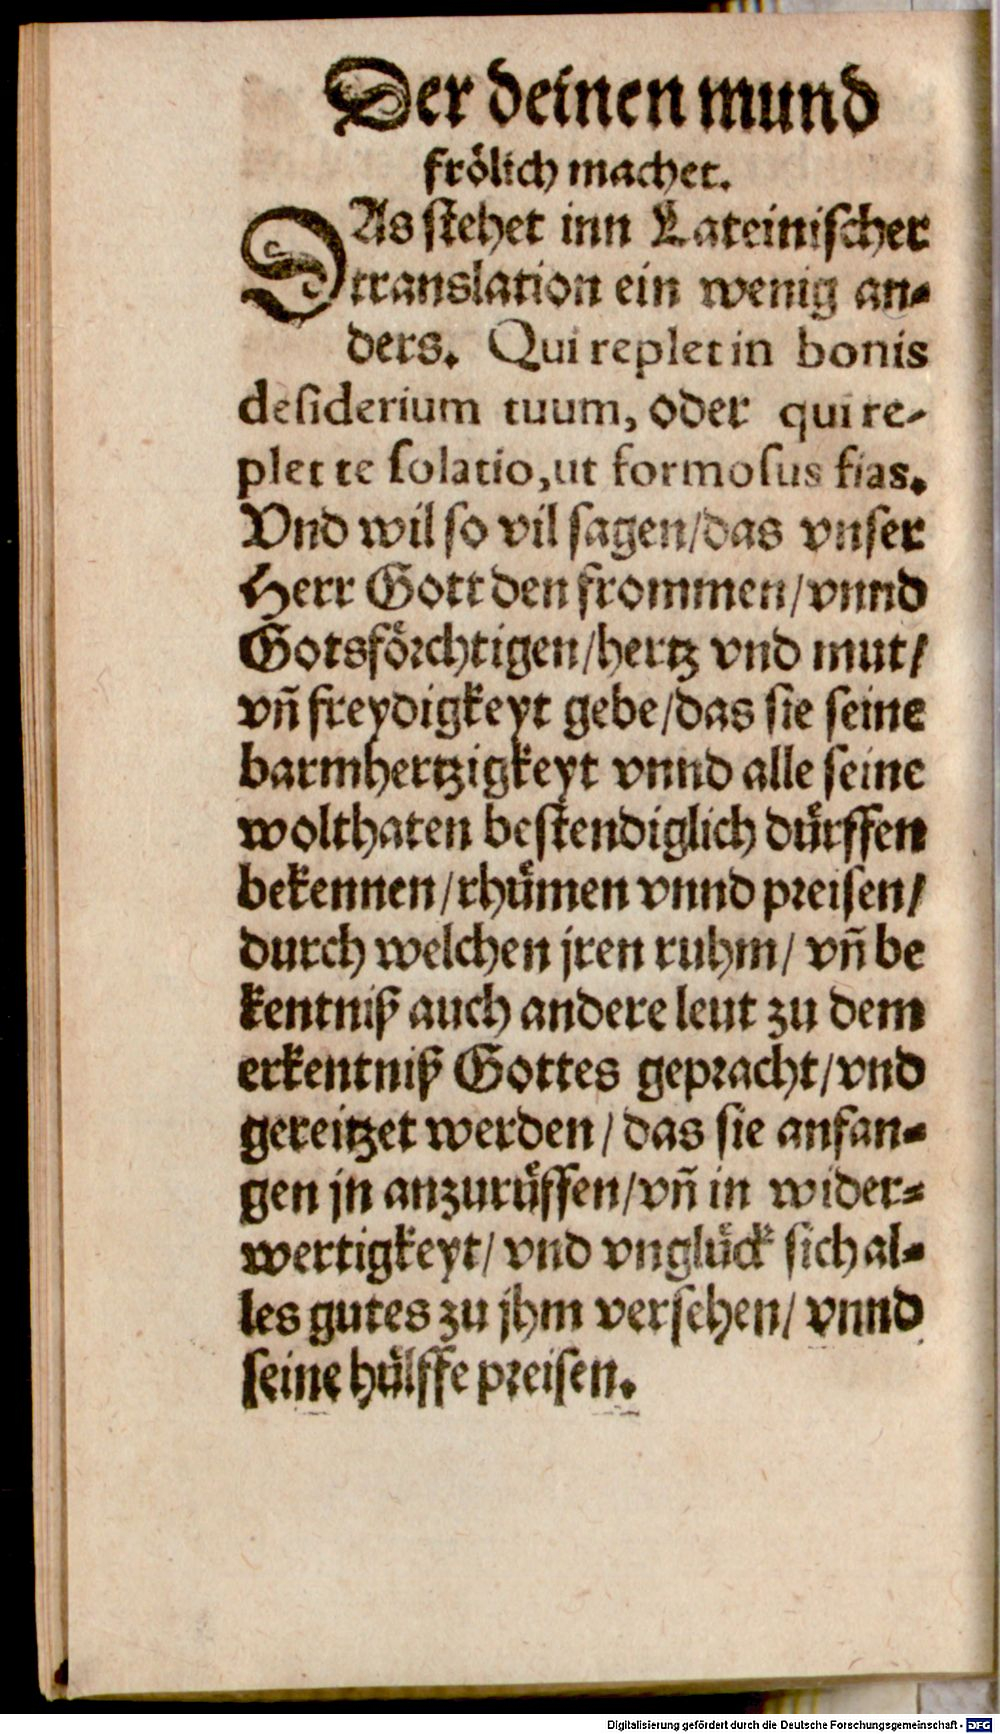 Der deinen mund
froͤlich machet.
DAs ſtehet inn Lateiniſcher
translation ein wenig an-
ders. Qui replet in bonis
deſiderium tuum, oder qui re-
plet te ſolatio, ut formoſus fias.
Vnd wil ſo vil ſagen/ das vnſer
Herr Gott den frommen/ vnnd
Gotsfoͤrchtigen/ hertz vnd mut/
vñ freydigkeyt gebe/ das ſie ſeine
barmhertzigkeyt vnnd alle ſeine
wolthaten beſtendiglich duͤrffen
bekennen/ rhuͤmen vnnd preiſen/
durch welchen jren ruhm/ vñ be
kentniß auch andere leut zu dem
erkentniß Gottes gepracht/ vnd
gereitzet werden/ das ſie anfan-
gen jn anzuruͤffen/ vñ in wider-
wertigkeyt/ vnd vngluͤck ſich al-
les gutes zu jhm verſehen/ vnnd
ſeine huͤlffe preiſen.
Digitalisierung gefördert durch die Deutsche Forschungsgemeinschaft - DFG